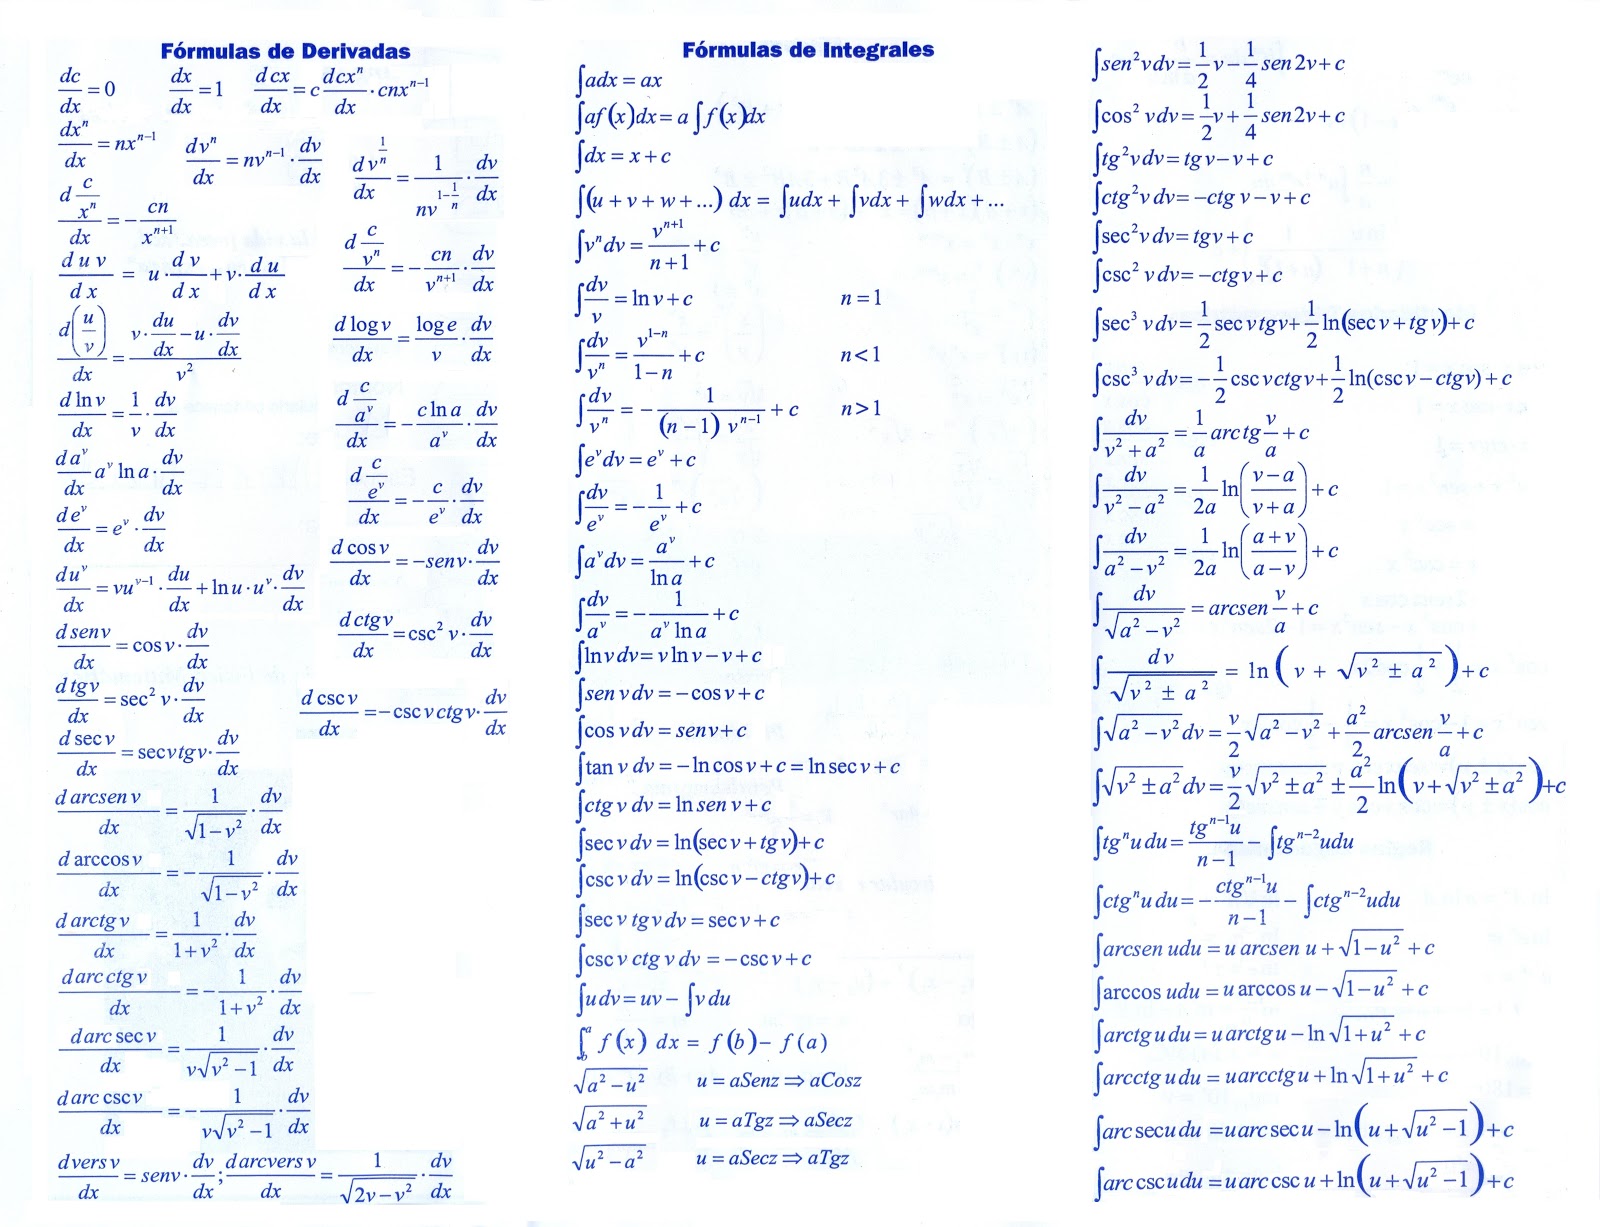 Fórmulas de Derivadas
dc/dx = 0    dx/dx = 1    d cx/dx = c    dcxⁿ/dx · cnxⁿ⁻¹
dxⁿ/dx = nxⁿ⁻¹    dvⁿ/dx = nvⁿ⁻¹ · dv/dx    d v^(1/n)/dx = 1/(nv^(1-1/n)) · dv/dx
d (c/xⁿ)/dx = - cn/xⁿ⁺¹    d (c/vⁿ)/dx = - cn/vⁿ⁺¹ · dv/dx
d u v/d x = u · d v/d x + v · d u/d x
d(u/v)/dx = (v · du/dx - u · dv/dx)/v²    d log v/dx = log e/v · dv/dx
d ln v/dx = 1/v · dv/dx    d (c/aᵛ)/dx = - c ln a/aᵛ · dv/dx
d aᵛ/dx aᵛ ln a · dv/dx    d (c/eᵛ)/dx = - c/eᵛ · dv/dx
d eᵛ/dx = eᵛ · dv/dx    d cos v/dx = -sen v · dv/dx
duᵛ/dx = vuᵛ⁻¹ · du/dx + ln u · uᵛ · dv/dx    d ctg v/dx = csc² v · dv/dx
d sen v/dx = cos v · dv/dx
d tg v/dx = sec² v · dv/dx    d csc v/dx = -csc v ctg v · dv/dx
d sec v/dx = sec v tg v · dv/dx
d arcsen v/dx = 1/√(1-v²) · dv/dx
d arccos v/dx = - 1/√(1-v²) · dv/dx
d arctg v/dx = 1/(1+v²) · dv/dx
d arc ctg v/dx = - 1/(1+v²) · dv/dx
d arc sec v/dx = 1/(v√(v²-1)) · dv/dx
d arc csc v/dx = - 1/(v√(v²-1)) · dv/dx
d vers v/dx = sen v · dv/dx ; d arcvers v/dx = 1/√(2v-v²) · dv/dx
Fórmulas de Integrales
∫adx = ax
∫af(x)dx = a ∫f(x)dx
∫dx = x + c
∫(u + v + w + ...) dx = ∫udx + ∫vdx + ∫wdx + ...
∫vⁿdv = vⁿ⁺¹/(n+1) + c
∫dv/v = ln v + c    n = 1
∫dv/vⁿ = v¹⁻ⁿ/(1-n) + c    n < 1
∫dv/vⁿ = - 1/((n-1) vⁿ⁻¹) + c    n > 1
∫eᵛdv = eᵛ + c
∫dv/eᵛ = - 1/eᵛ + c
∫aᵛdv = aᵛ/ln a + c
∫dv/aᵛ = - 1/(aᵛ ln a) + c
∫ln v dv = v ln v - v + c
∫sen v dv = -cos v + c
∫cos v dv = sen v + c
∫tan v dv = -ln cos v + c = ln sec v + c
∫ctg v dv = ln sen v + c
∫sec v dv = ln(sec v + tg v) + c
∫csc v dv = ln(csc v - ctg v) + c
∫sec v tg v dv = sec v + c
∫csc v ctg v dv = -csc v + c
∫u dv = uv - ∫v du
∫_b^a f(x) dx = f(b) - f(a)
√(a² - u²)    u = aSenz ⇒ aCosz
√(a² + u²)    u = aTgz ⇒ aSecz
√(u² - a²)    u = aSecz ⇒ aTgz
∫sen² v dv = 1/2 v - 1/4 sen 2v + c
∫cos² v dv = 1/2 v + 1/4 sen 2v + c
∫tg² v dv = tg v - v + c
∫ctg² v dv = -ctg v - v + c
∫sec² v dv = tg v + c
∫csc² v dv = -ctg v + c
∫sec³ v dv = 1/2 sec v tg v + 1/2 ln(sec v + tg v) + c
∫csc³ v dv = - 1/2 csc v ctg v + 1/2 ln(csc v - ctg v) + c
∫dv/(v² + a²) = 1/a arc tg v/a + c
∫dv/(v² - a²) = 1/2a ln((v - a)/(v + a)) + c
∫dv/(a² - v²) = 1/2a ln((a + v)/(a - v)) + c
∫dv/√(a² - v²) = arcsen v/a + c
∫dv/√(v² ± a²) = ln (v + √(v² ± a²)) + c
∫√(a² - v²) dv = v/2 √(a² - v²) + a²/2 arcsen v/a + c
∫√(v² ± a²) dv = v/2 √(v² ± a²) ± a²/2 ln(v + √(v² ± a²)) + c
∫tgⁿ u du = tgⁿ⁻¹u/(n-1) - ∫tgⁿ⁻² u du
∫ctgⁿ u du = - ctgⁿ⁻¹u/(n-1) - ∫ctgⁿ⁻² u du
∫arcsen u du = u arcsen u + √(1-u²) + c
∫arccos u du = u arccos u - √(1-u²) + c
∫arctg u du = u arctg u - ln √(1+u²) + c
∫arcctg u du = u arcctg u + ln √(1+u²) + c
∫arc sec u du = u arc sec u - ln(u + √(u²-1)) + c
∫arc csc u du = u arc csc u + ln(u + √(u²-1)) + c